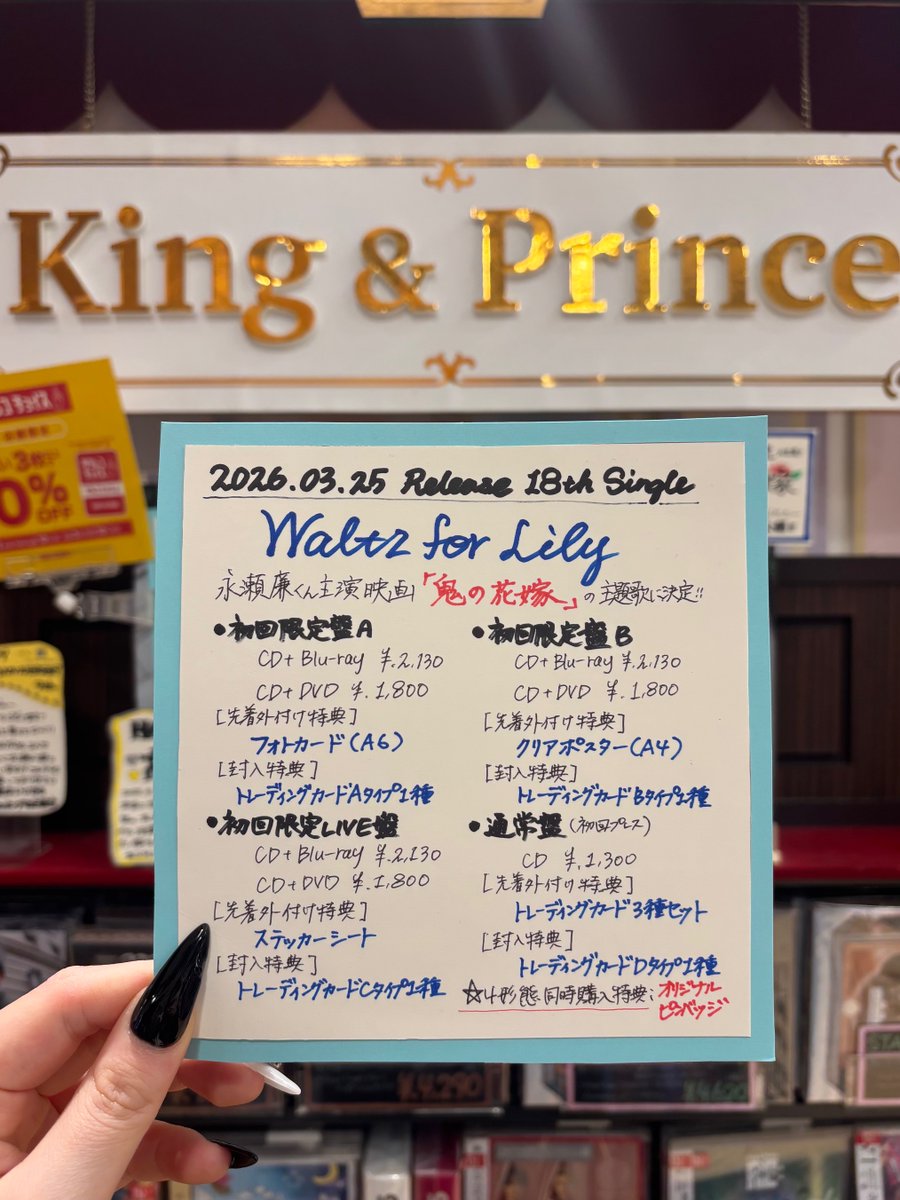 King & Prince
チョイス
3枚
0%
OFF
2026.03.25 Release 18th Single
Waltz for Lily
永瀬廉くん主演映画「鬼の花嫁」の主題歌に決定!!
●初回限定盤A
CD+Blu-ray ¥.2,130
CD+DVD ¥.1,800
[先着外付け特典]
フォトカード(A6)
[封入特典]
トレーディングカードAタイプ1種
●初回限定盤B
CD+Blu-ray ¥.2,130
CD+DVD ¥.1,800
[先着外付け特典]
クリアポスター(A4)
[封入特典]
トレーディングカードBタイプ1種
●初回限定LIVE盤
CD+Blu-ray ¥.2,130
CD+DVD ¥.1,800
[先着外付け特典]
ステッカーシート
[封入特典]
トレーディングカードCタイプ1種
●通常盤(初回プレス)
CD ¥.1,300
[先着外付け特典]
トレーディングカード3種セット
[封入特典]
トレーディングカードDタイプ1種
☆4形態同時購入特典:オリジナル
ピンバッジ
¥4,290